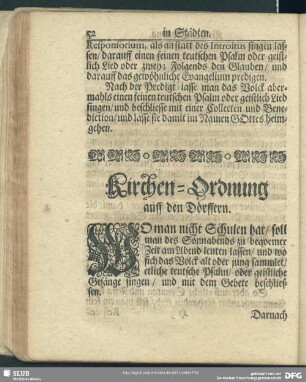 52 in Städten.
Responsorium, als an statt des Introitus singen las-
sen/ darauff einen feinen teutschen Psalm oder geist-
lich Lied oder zwey: Folgends den Glauben/ und
darauf das gewöhnliche Evangelium predigen.
Nach der Predigt lasse man das Volck aber-
mahls einen feinen teutschen Psalm oder geistlich Lied
singen/ und beschliesse mit einer Collecten und Bene-
diction/ und lasse sie damit im Namen GOttes heim-
gehen.
Kirchen-Ordnung
auff den Dörffern.
WO man nicht Schulen hat/ soll
man des Sonnabends zu beqvemer
Zeit am Abend leuten lassen/ und wo
sich das Volck alt oder jung sammlet/
etliche teutsche Psalm/ oder geistliche
Gesänge singen/ und mit dem Gebete beschlies-
sen.
Darnach
SLUB
DFG